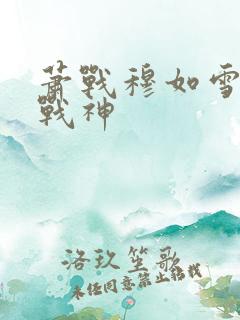 蕭戰穆如雪
戰神
洛玖笙歌
未经同意禁止转载